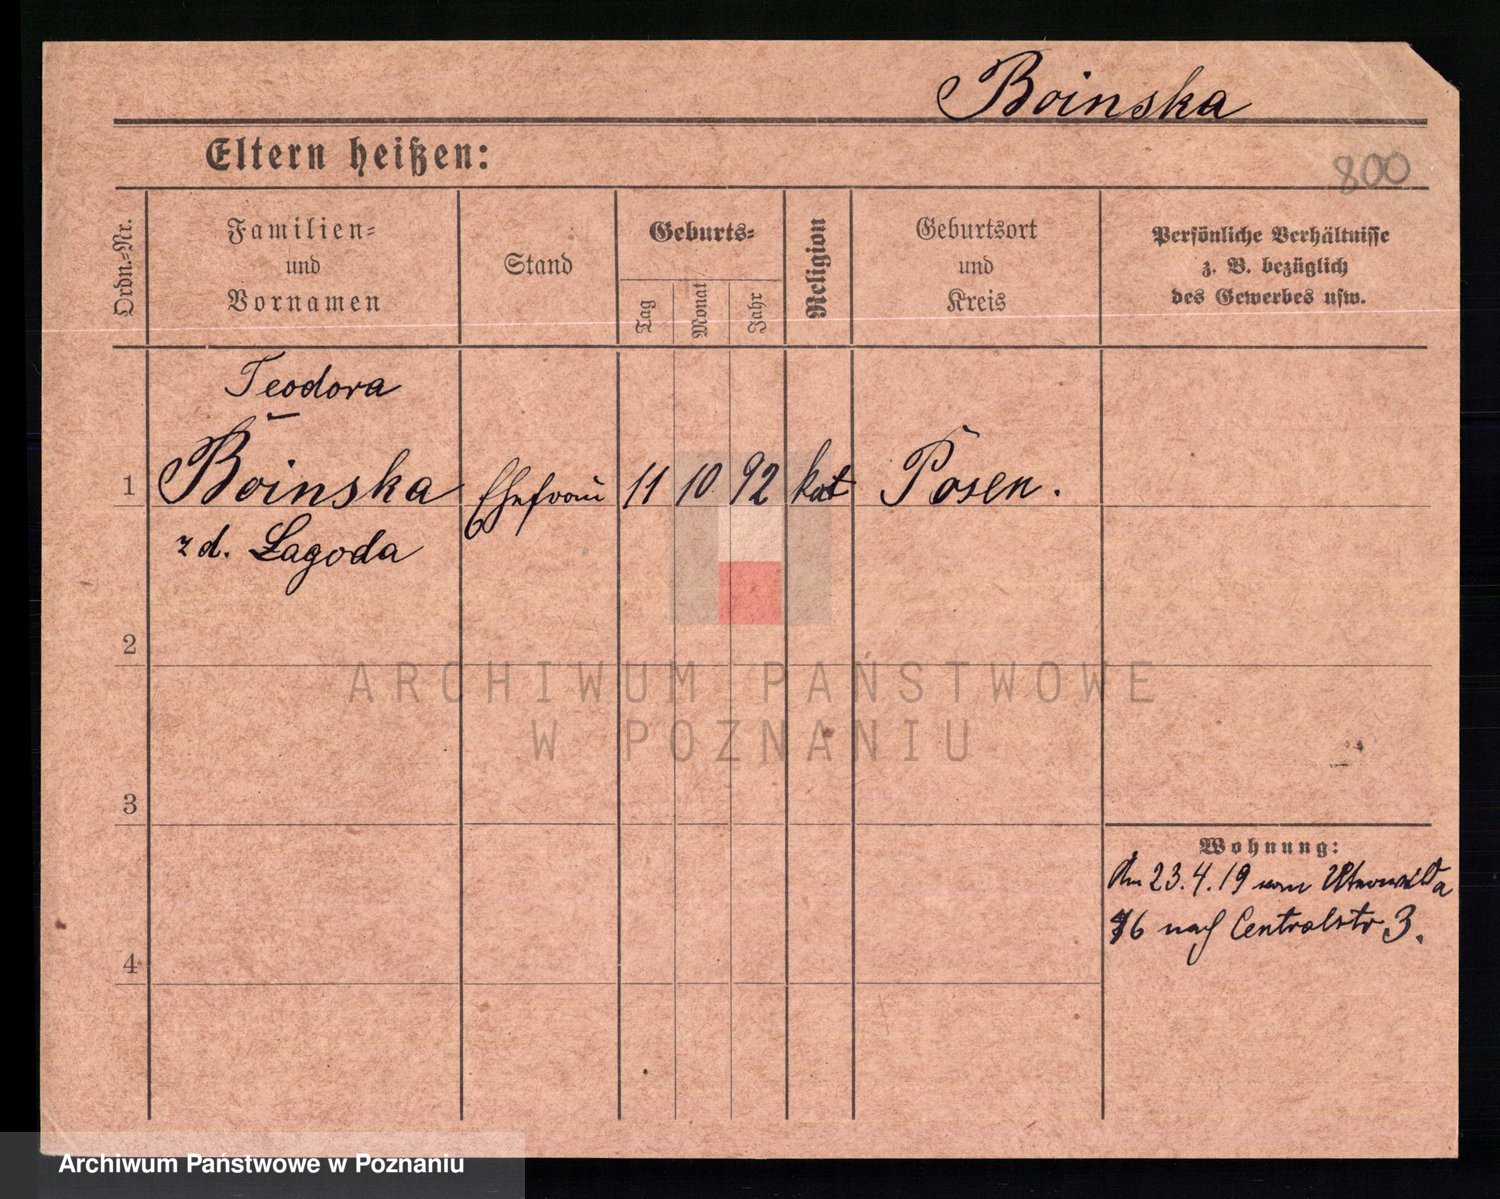 Boinska
Eltern heißen:
800
Ordn.-Nr.
Familien-
und
Vornamen
Stand
Geburts-
Tag
Monat
Jahr
Religion
Geburtsort
und
Kreis
Persönliche Verhältnisse
z. B. bezüglich
des Gewerbes usw.
Teodora
1 Boinska Ehefrau 11 10 92 kat Posen.
z d. Lagoda
2
3
4
Wohnung:
23.4.19 von
nach Centralstr 3.
ARCHIWUM PAŃSTWOWE
W POZNANIU
Archiwum Państwowe w Poznaniu